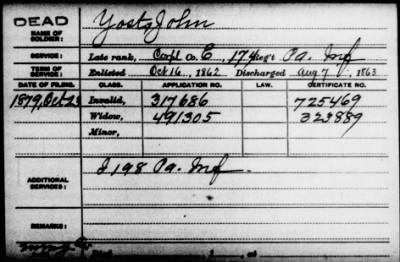 DEAD
NAME OF SOLDIER:
Yost, John
SERVICE:
Late rank, Corpl Co. E, 174 Reg't Pa. Inf
TERM OF SERVICE:
Enlisted Oct 16, 1862 Discharged Aug 7, 1863
DATE OF FILING. CLASS. APPLICATION NO. LAW. CERTIFICATE NO.
1879, Oct 23 Invalid, 317686 725469
Widow, 491305 323889
Minor,
ADDITIONAL SERVICES:
I 198 Pa. Inf.
REMARKS:
Died , 1 , at